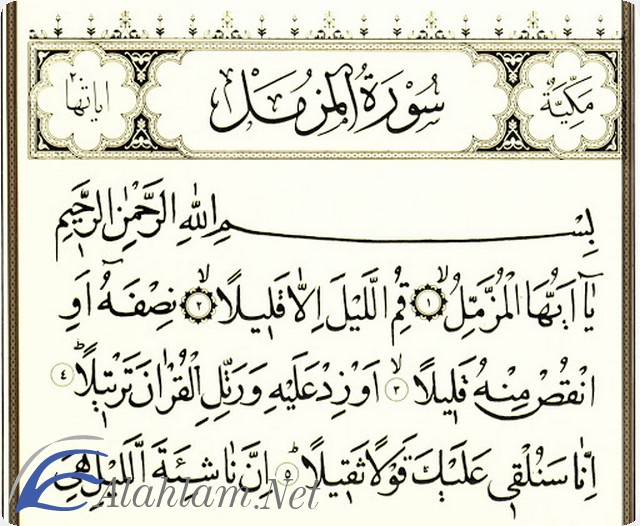 مَكِّيَّةٌ
سُورَةُ الْمُزَّمِّلْ
اٰيَاتُهَا ٢٠
بِسْمِ اللّٰهِ الرَّحْمٰنِ الرَّحِيمِ
يَٓا اَيُّهَا الْمُزَّمِّلُۙ ﴿١﴾ قُمِ الَّيْلَ اِلَّا قَلِيلًاۙ ﴿٢﴾ نِصْفَهُٓ اَوِ
انْقُصْ مِنْهُ قَلِيلًاۙ ﴿٣﴾ اَوْ زِدْ عَلَيْهِ وَرَتِّلِ الْقُرْاٰنَ تَرْتِيلًاۜ ﴿٤﴾
اِنَّا سَنُلْقِي عَلَيْكَ قَوْلًا ثَقِيلًاۜ ﴿٥﴾ اِنَّ نَاشِئَةَ الَّيْلِ هِيَ
Alahlam.Net